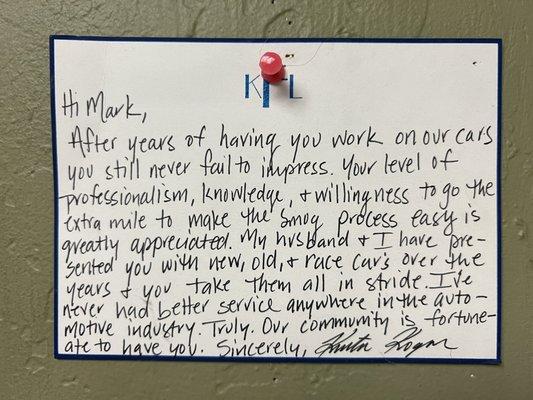 KFL
Hi Mark,
After years of having you work on our cars
you still never fail to impress. Your level of
professionalism, knowledge, + willingness to go the
extra mile to make the smog process easy is
greatly appreciated. My husband + I have pre-
sented you with new, old, + race cars over the
years + you take them all in stride. I've
never had better service anywhere in the auto-
motive industry. Truly. Our community is fortune-
ate to have you. Sincerely,